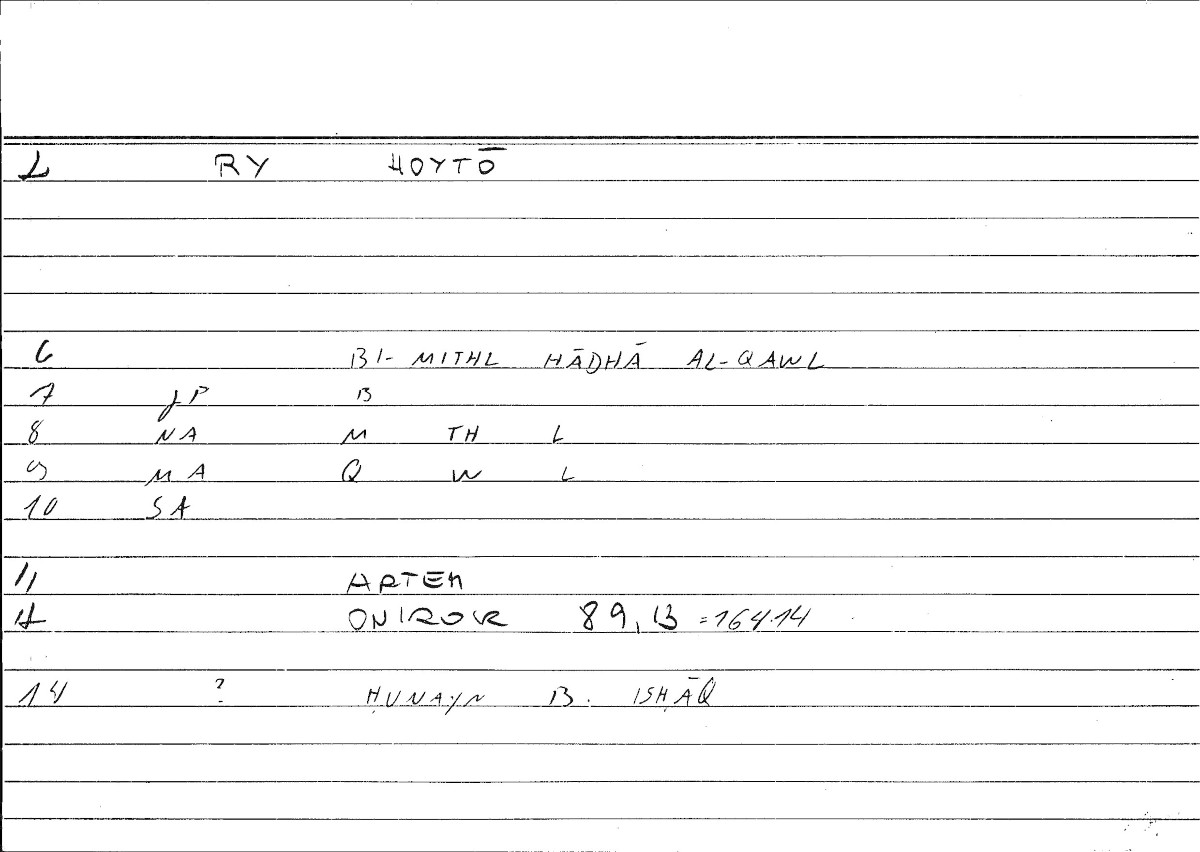 1 RY HOYTŌ
6 BI- MITHL HĀDHĀ AL-QAWL
7 JP B
8 NA M TH L
9 MA Q W L
10 SA
11 ARTEM
12 ONIROK 89,13 =164.14
14 ? ḤUNAYN B. ISḤĀQ